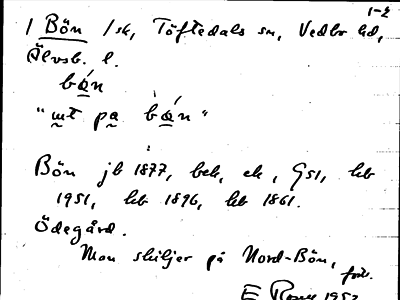 1-2
1 Bön /sk, Töftedals sn, Vedbo hd,
Älvsb. l.
bǿn
"ut på bön"
Bön jb 1877, bek, ek, GS1, hb
1951, hb 1896, hb 1861.
Ödegård.
Man skiljer på Nord-Bön,
forts.
1952